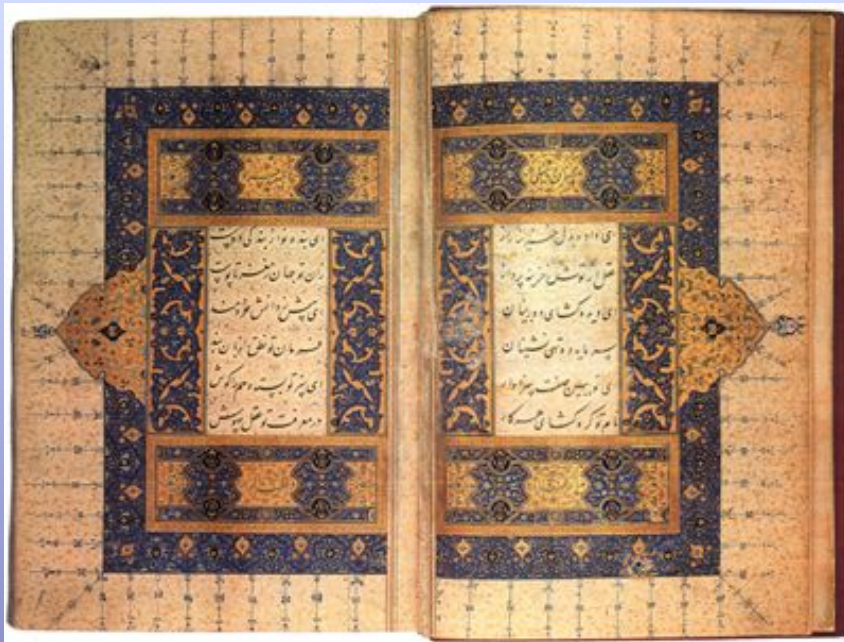 ای داده بدل خزینه راز
عقل از تو شده خزینه پرداز
ای دیده گشای دوربینان
سرمایه ده تهی نشینان
ای تو ببهین صفت سزاوار
نام تو گره گشای هر کار
ای بنده نواز بندگی دوست
زان تو جهان ز مغز تا پوست
ای پیش ز دانش خردمند
فرمان تو نطق را زبان بند
ای سر تو بسته وهم را گوش
در معرفت تو عقل بیهوش